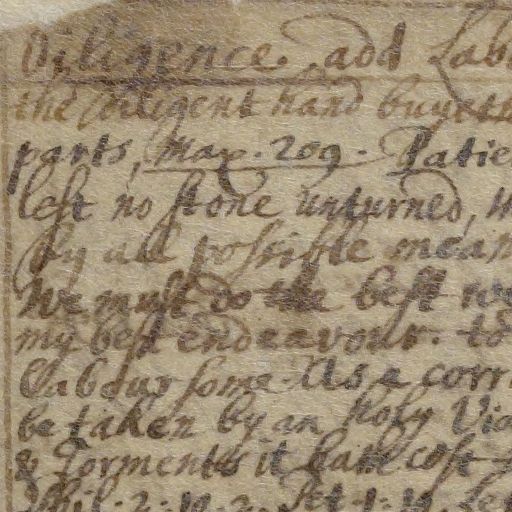 Diligence. add Lab
the diligent hand buyeth
parts, Max. 209. Patie
left no stone unturned,
by all possible mean
We must do the best we
my best endeavour. to
labour some. As a corr
be taken by an holy Vio
& Torments it hath cost
Phil. 2. 12. 2. Pet. 1.